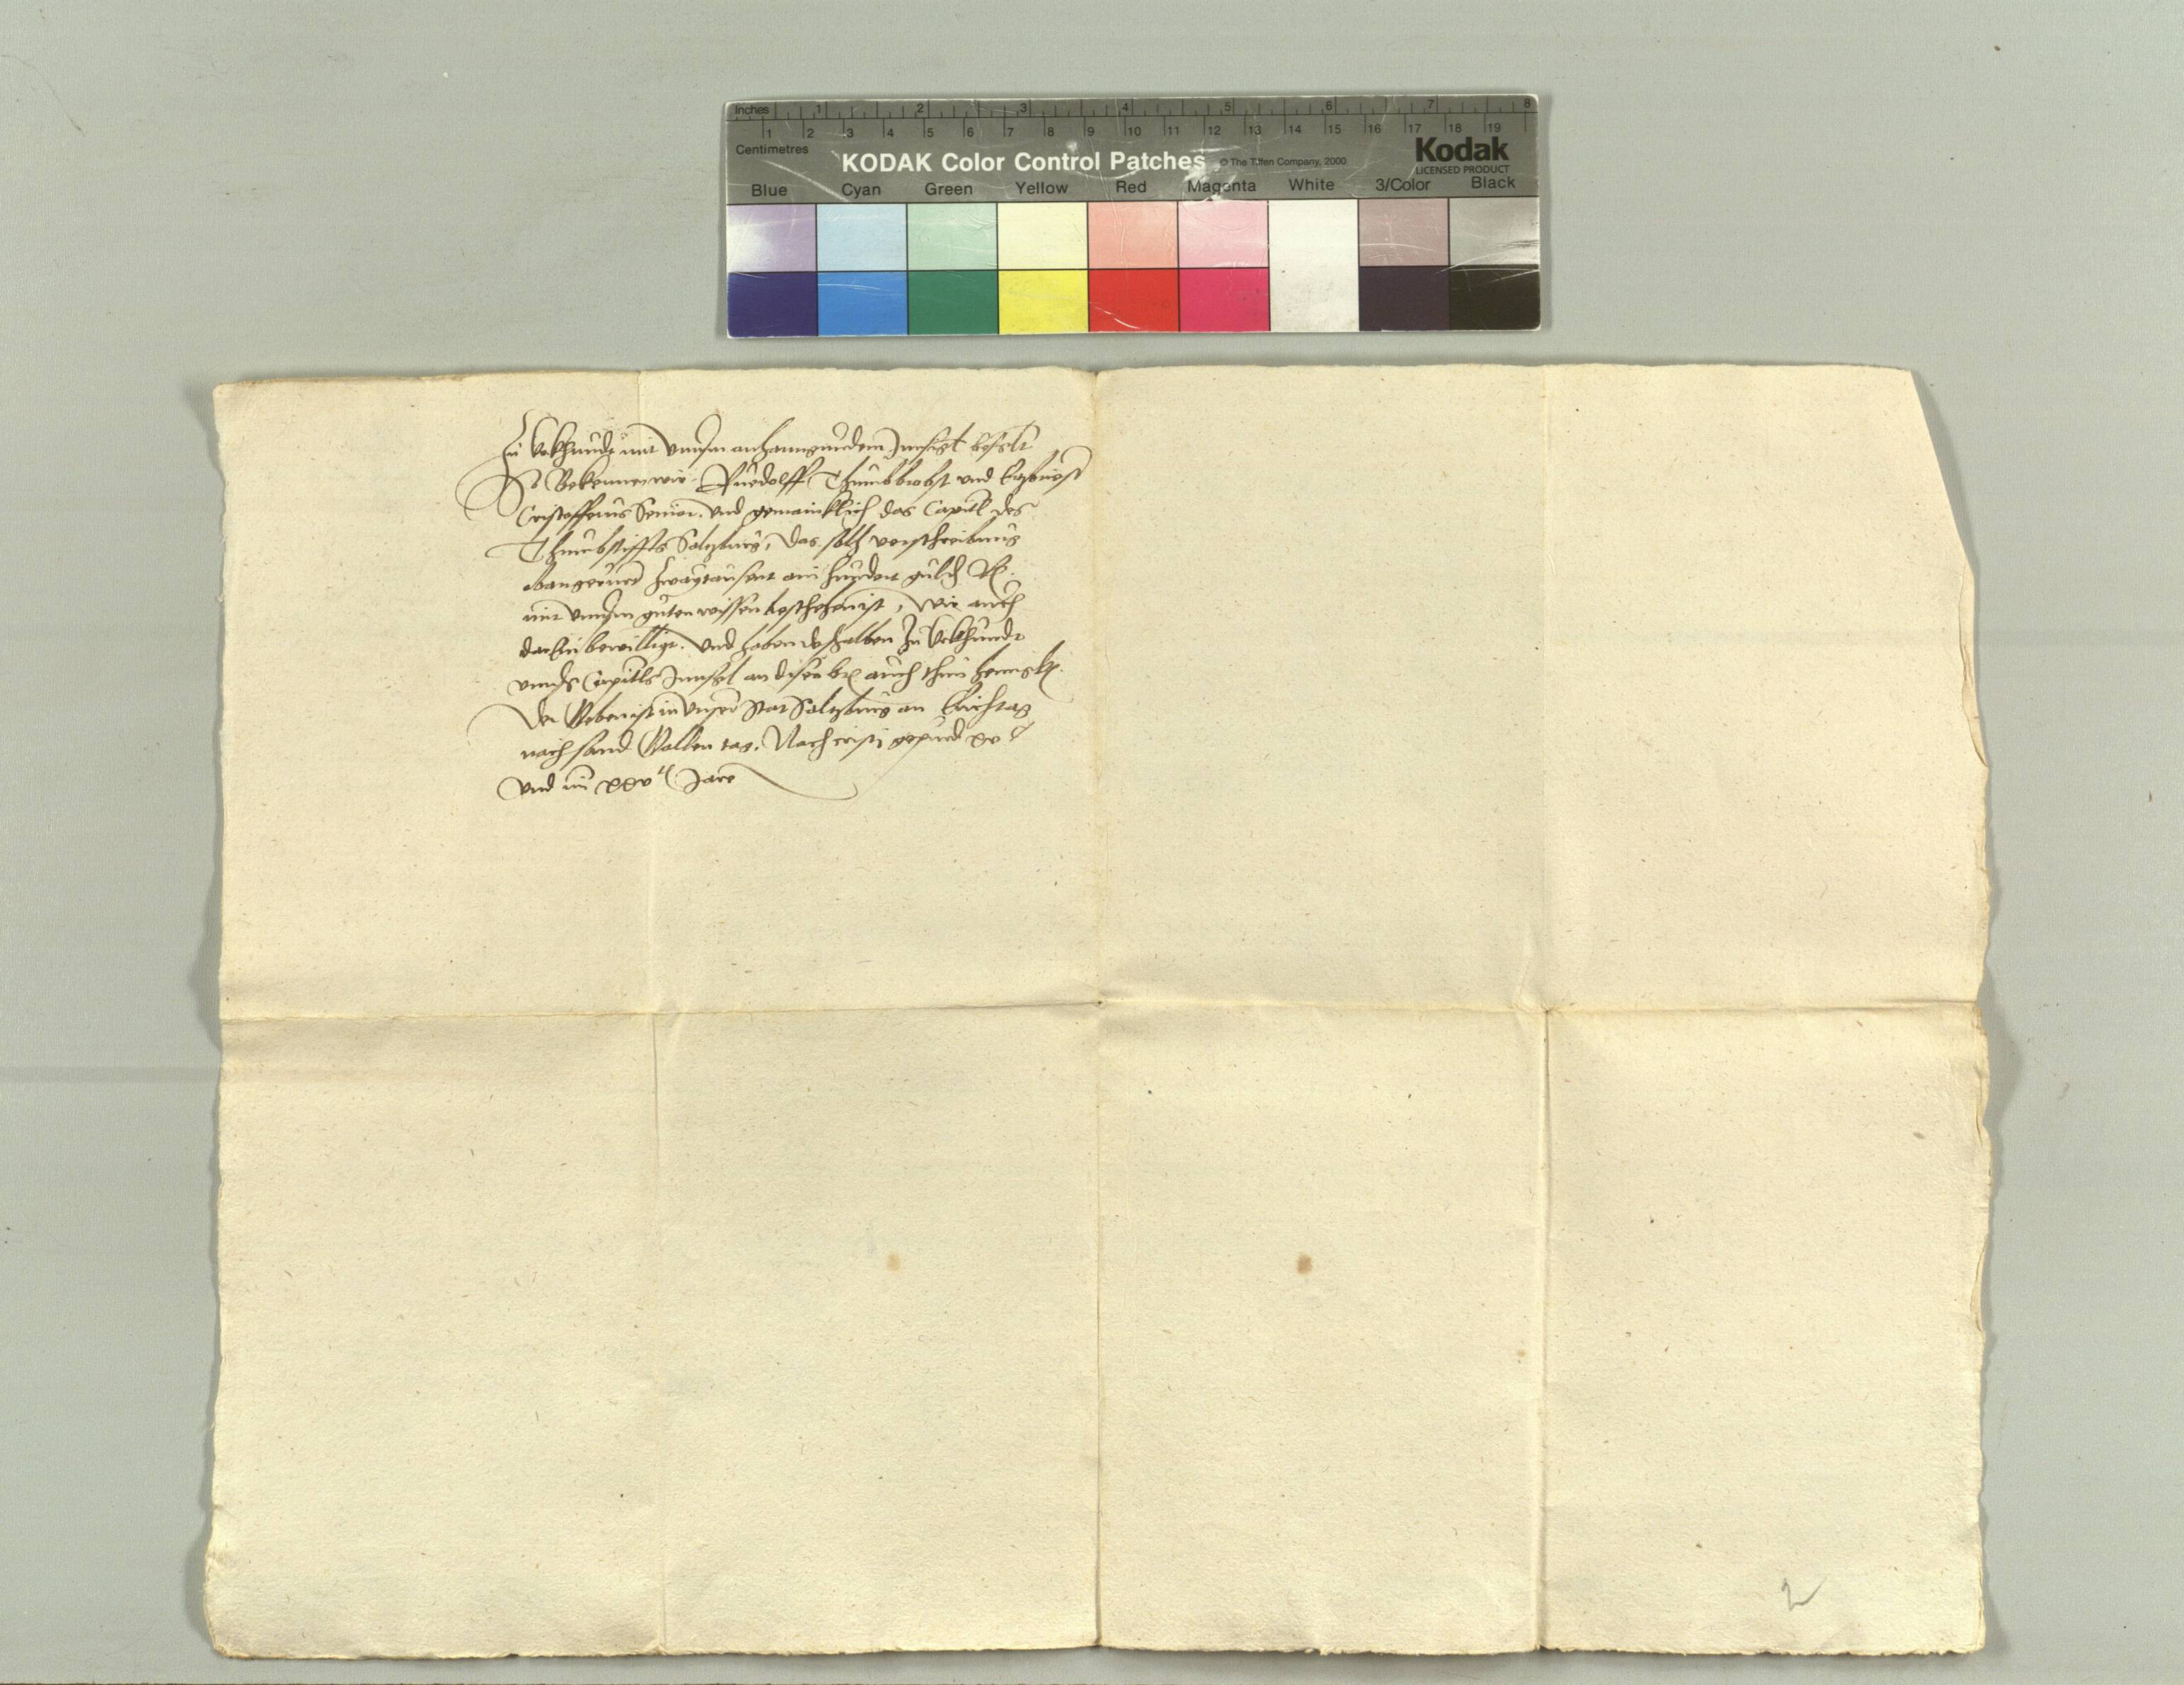 Inches 1 2 3 4 5 6 7 8
1 2 3 4 5 6 7 8 9 10 11 12 13 14 15 16 17 18 19
Centimetres
KODAK Color Control Patches © The Tiffen Company, 2000 Kodak
LICENSED PRODUCT
Blue Cyan Green Yellow Red Magenta White 3/Color Black
Zu Vrkhundt mit vnnserm anhanngundem Innsigl besglt
So Bekennen wir Ruedolff Thumbbrobst und
Cristofferus Senior. Vnd gemainklich das Capitl des
Thumbstiffts Saltzburg, das solh verschreibung
zwaytausent ain hundert guld R.
mit vnnserm guten wissen beschehen ist, wir auch
darein bewilligt. Vnd haben deshalben zu Vrkhundt
vnnsers Capitls Innsigl an disen br. auch thun henngkn.
Der Geben ist in vnser Stat Saltzburg an Erichtag
nach sannd Gallen tag. Nach cristi gepurd xv c
vnd im xxv ten Jare
2